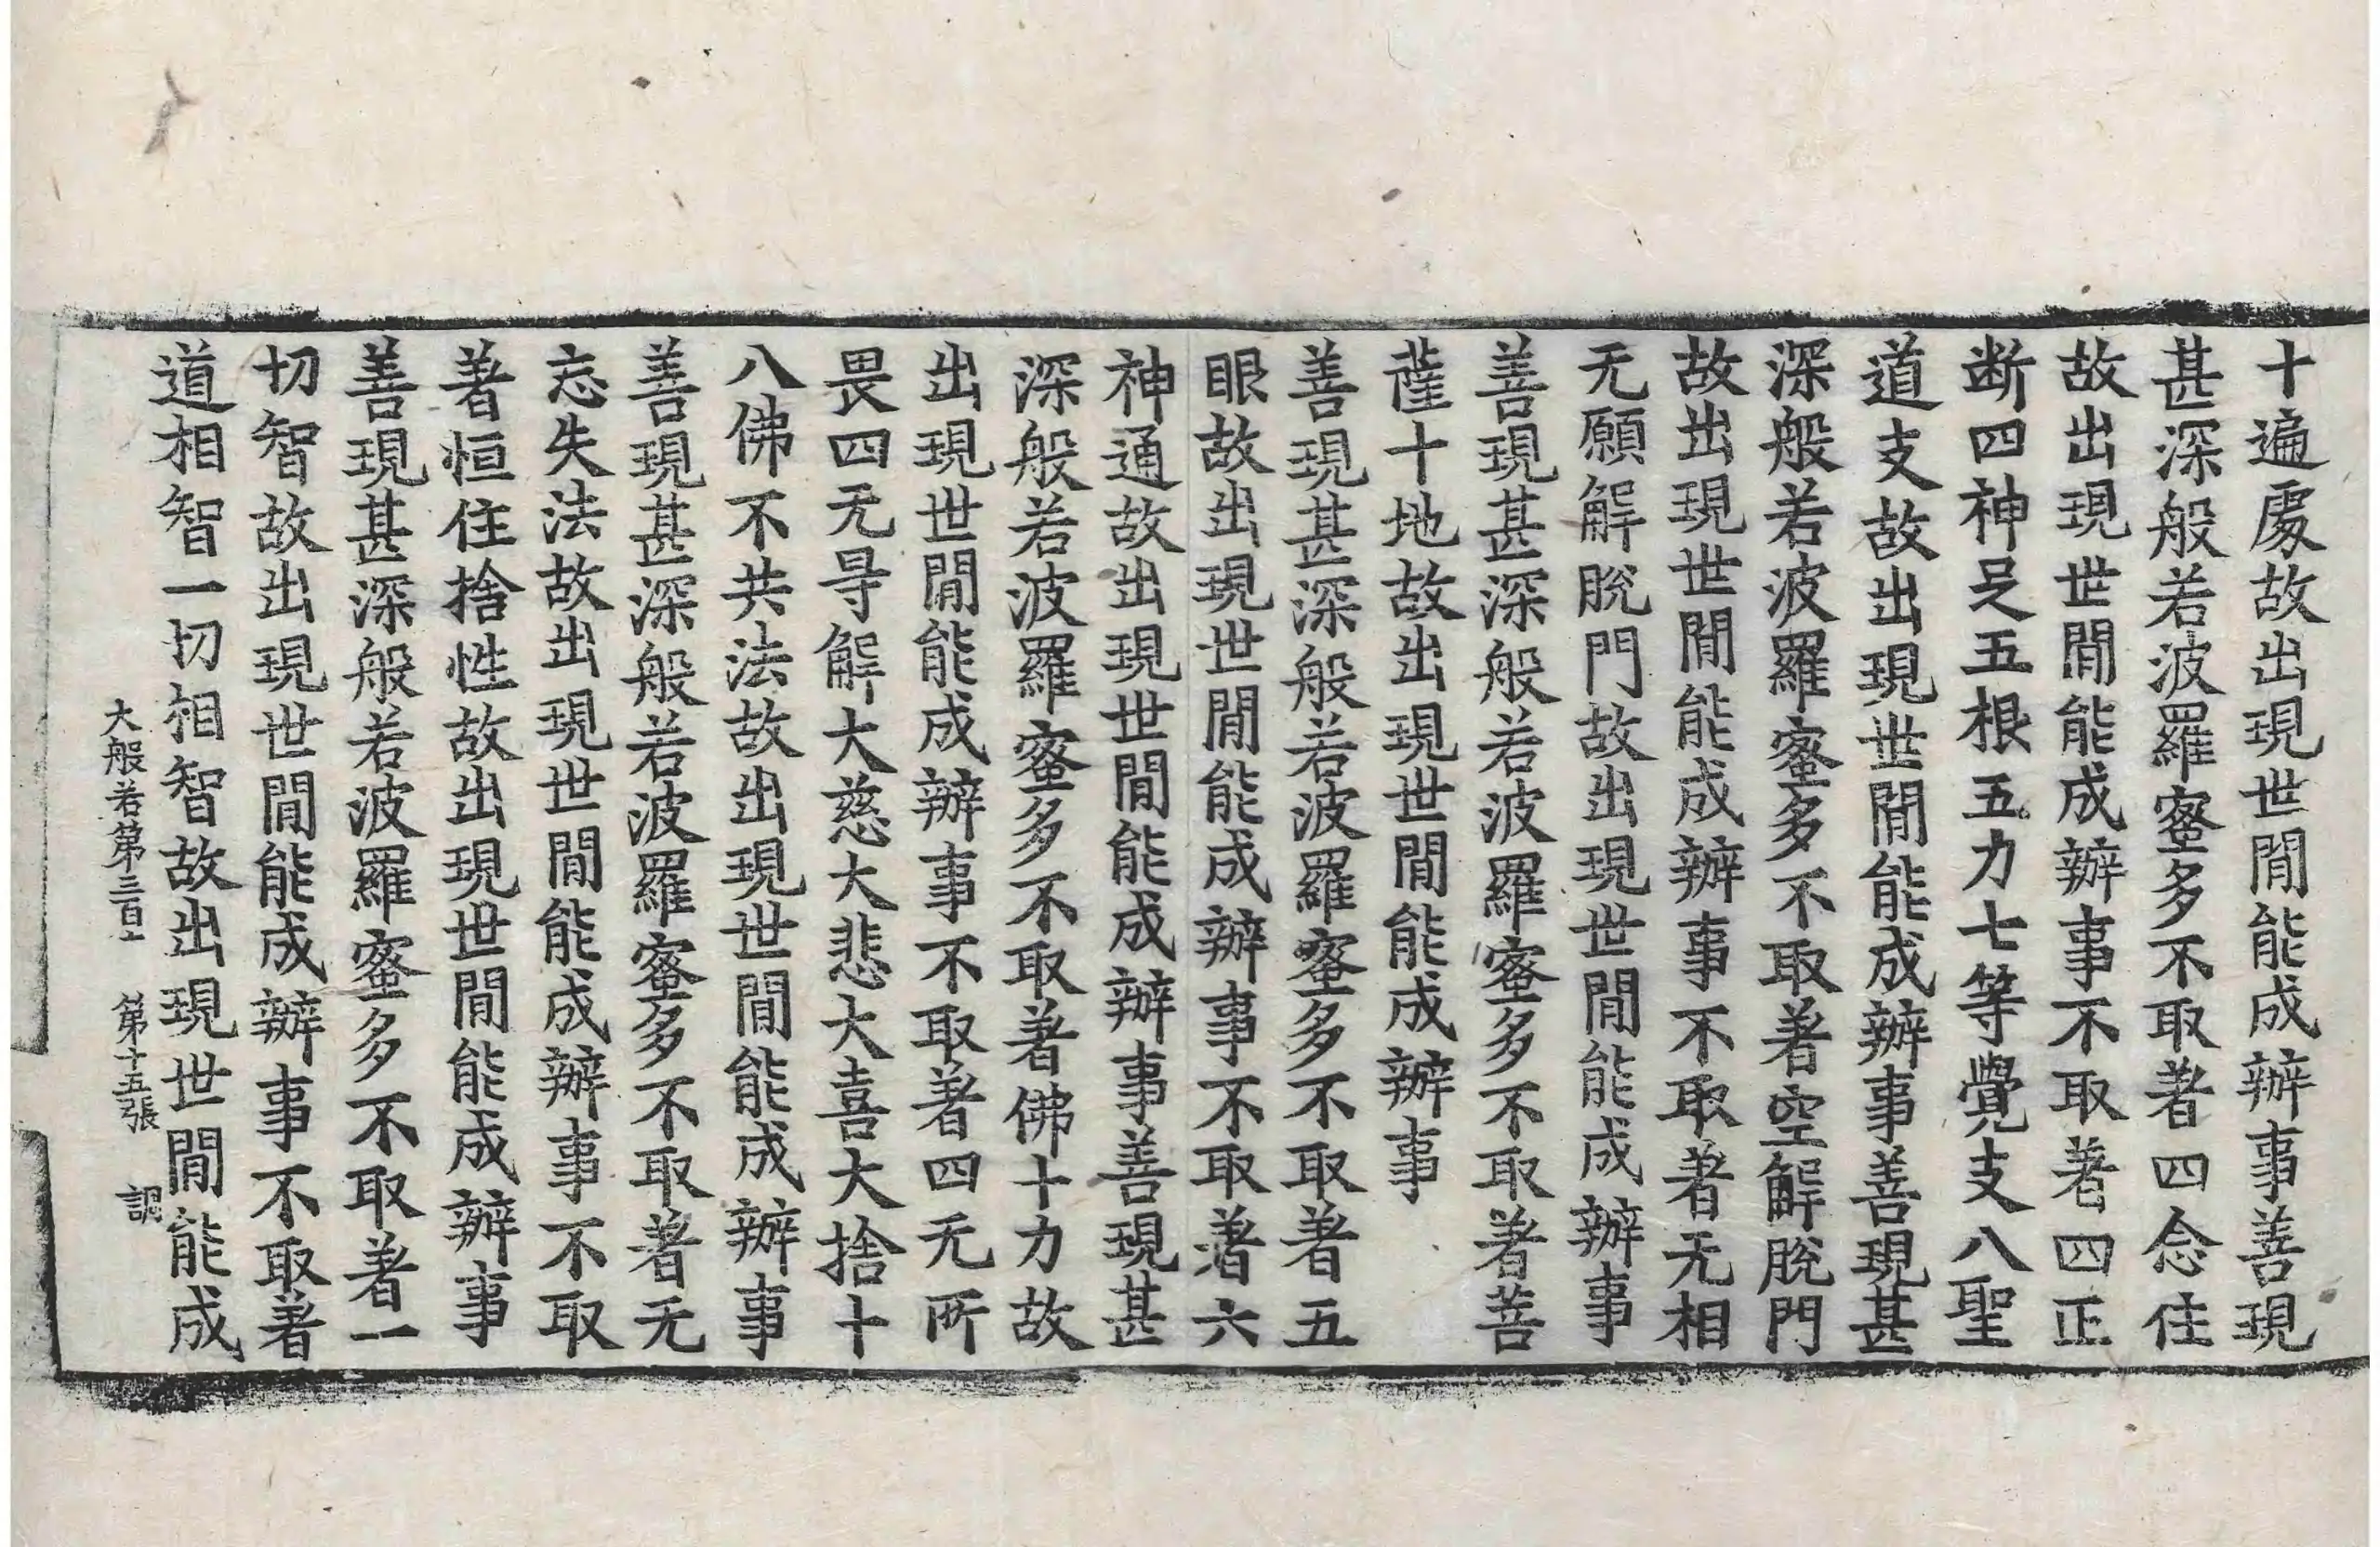 十遍處故出現世間能成辦事善現
甚深般若波羅蜜多不取著四念住
故出現世間能成辦事不取著四正
斷四神足五根五力七等覺支八聖
道支故出現世間能成辦事善現甚
深般若波羅蜜多不取著空解脫門
故出現世間能成辦事不取著无相
无願解脫門故出現世間能成辦事
善現甚深般若波羅蜜多不取著菩
薩十地故出現世間能成辦事
善現甚深般若波羅蜜多不取著五
眼故出現世間能成辦事不取著六
神通故出現世間能成辦事善現甚
深般若波羅蜜多不取著佛十力故
出現世間能成辦事不取著四无所
畏四无㝵解大慈大悲大喜大捨十
八佛不共法故出現世間能成辦事
善現甚深般若波羅蜜多不取著无
忘失法故出現世間能成辦事不取
著恒住捨性故出現世間能成辦事
善現甚深般若波羅蜜多不取著一
切智故出現世間能成辦事不取著
道相智一切相智故出現世間能成
大般若第三百 第十五張 調